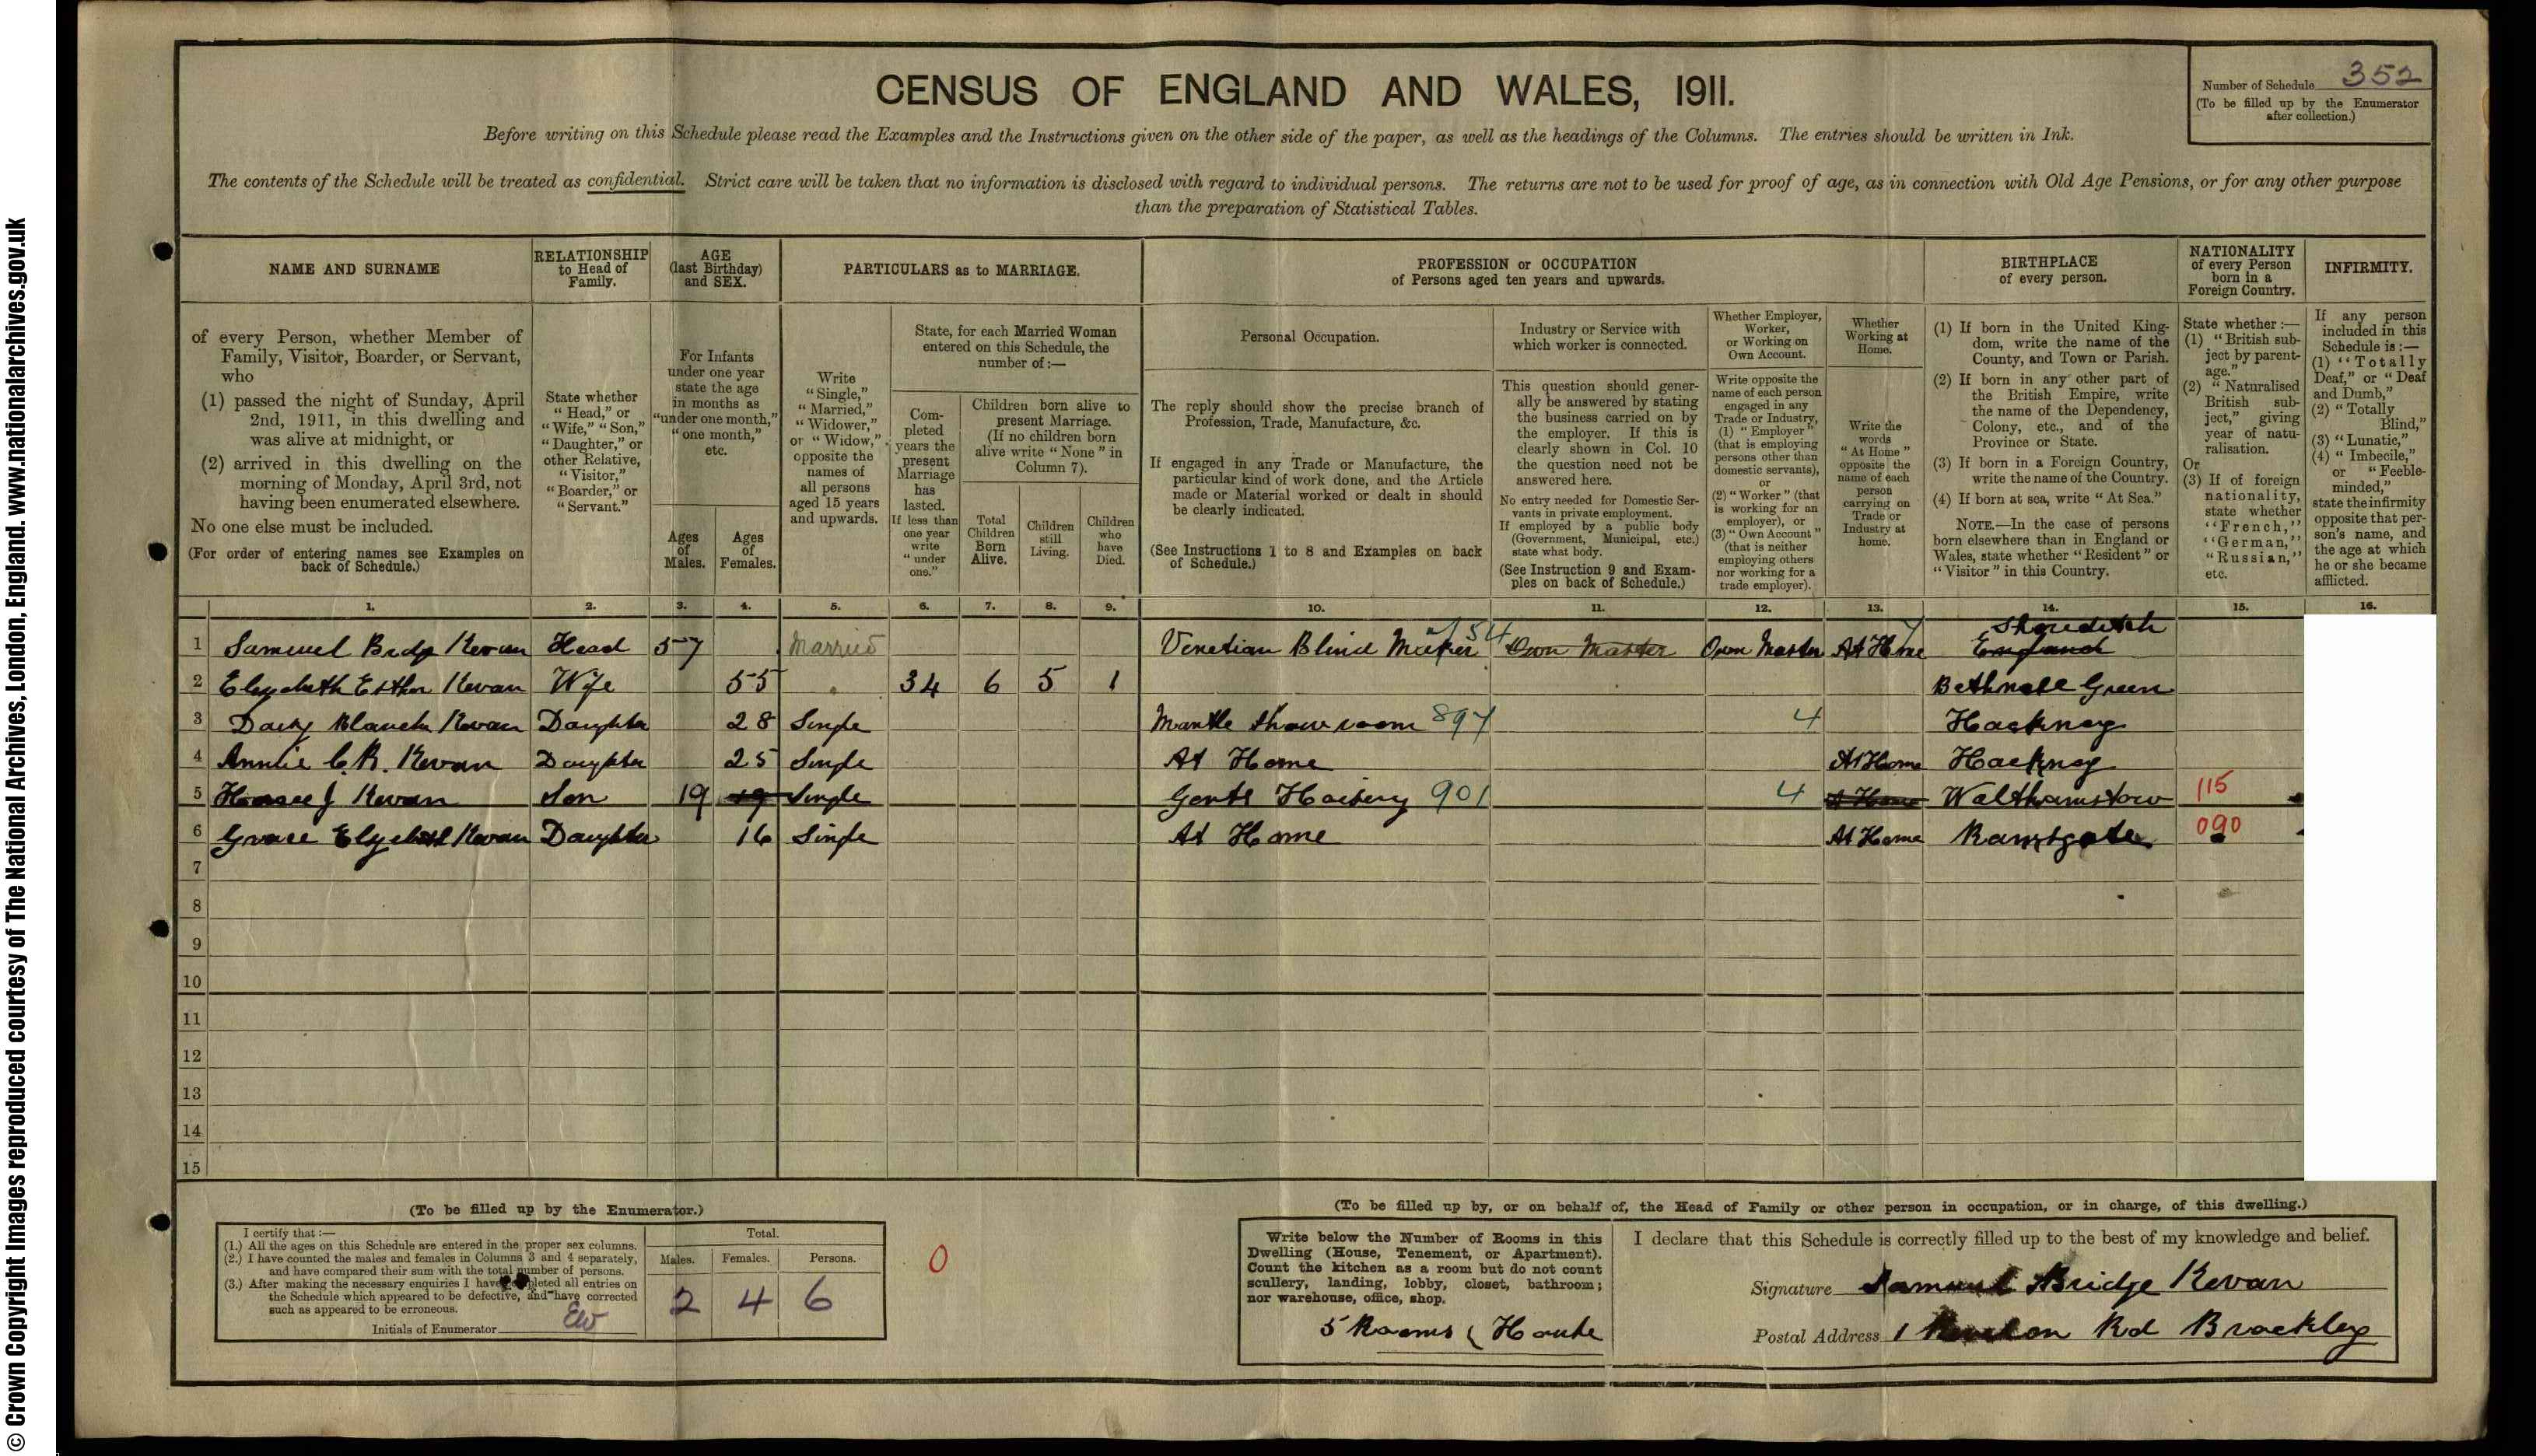 CENSUS OF ENGLAND AND WALES, 1911.
Number of Schedule 352
(To be filled up by the Enumerator after collection.)
Before writing on this Schedule please read the Examples and the Instructions given on the other side of the paper, as well as the headings of the Columns. The entries should be written in Ink.
The contents of the Schedule will be treated as confidential. Strict care will be taken that no information is disclosed with regard to individual persons. The returns are not to be used for proof of age, as in connection with Old Age Pensions, or for any other purpose
than the preparation of Statistical Tables.
NAME AND SURNAME
of every Person, whether Member of Family, Visitor, Boarder, or Servant, who
(1) passed the night of Sunday, April 2nd, 1911, in this dwelling and was alive at midnight, or
(2) arrived in this dwelling on the morning of Monday, April 3rd, not having been enumerated elsewhere.
No one else must be included.
(For order of entering names see Examples on back of Schedule.)
RELATIONSHIP to Head of Family.
State whether "Head," or "Wife," "Son," "Daughter," or other Relative, "Visitor," "Boarder," or "Servant."
AGE (last Birthday) and SEX.
For Infants under one year state the age in months as "under one month," "one month," etc.
Ages of Males.
Ages of Females.
PARTICULARS as to MARRIAGE.
Write "Single," "Married," "Widower," or "Widow," opposite the names of all persons aged 15 years and upwards.
State, for each Married Woman entered on this Schedule, the number of:—
Completed years the present Marriage has lasted. If less than one year write "under one."
Children born alive to present Marriage. (If no children born alive write "None" in Column 7).
Total Children Born Alive.
Children still Living.
Children who have Died.
PROFESSION or OCCUPATION of Persons aged ten years and upwards.
Personal Occupation.
The reply should show the precise branch of Profession, Trade, Manufacture, &c.
If engaged in any Trade or Manufacture, the particular kind of work done, and the Article made or Material worked or dealt in should be clearly indicated.
(See Instructions 1 to 8 and Examples on back of Schedule.)
Industry or Service with which worker is connected.
This question should generally be answered by stating the business carried on by the employer. If this is clearly shown in Col. 10 the question need not be answered here.
No entry needed for Domestic Servants in private employment. If employed by a public body (Government, Municipal, etc.) state what body.
(See Instruction 9 and Examples on back of Schedule.)
Whether Employer, Worker, or Working on Own Account.
Write opposite the name of each person engaged in any Trade or Industry, (1) "Employer" (that is employing persons other than domestic servants), or (2) "Worker" (that is working for an employer), or (3) "Own Account" (that is neither employing others nor working for a trade employer).
Whether Working at Home.
Write the words "At Home" opposite the name of each person carrying on Trade or Industry at home.
BIRTHPLACE of every person.
(1) If born in the United Kingdom, write the name of the County, and Town or Parish.
(2) If born in any other part of the British Empire, write the name of the Dependency, Colony, etc., and of the Province or State.
(3) If born in a Foreign Country, write the name of the Country.
(4) If born at sea, write "At Sea."
NOTE.—In the case of persons born elsewhere than in England or Wales, state whether "Resident" or "Visitor" in this Country.
NATIONALITY of every Person born in a Foreign Country.
State whether:—
(1) "British subject by parentage."
(2) "Naturalised British subject," giving year of naturalisation.
Or
(3) If of foreign nationality, state whether "French," "German," "Russian," etc.
INFIRMITY.
If any person included in this Schedule is:—
(1) "Totally Deaf," or "Deaf and Dumb,"
(2) "Totally Blind,"
(3) "Lunatic,"
(4) "Imbecile," or "Feeble-minded,"
state the infirmity opposite that person's name, and the age at which he or she became afflicted.
1. 2. 3. 4. 5. 6. 7. 8. 9. 10. 11. 12. 13. 14. 15. 16.
1 Samuel Bridge Kevan Head 57 Married Venetian Blind Maker 54 Own Master Own Master At Home Shoreditch England
2 Elizabeth Esther Kevan Wife 55 34 6 5 1 Bethnall Green
3 Daisy Blanch Kevan Daughter 28 Single Mantle Showroom 897 4 Hackney
4 Annie C. R. Kevan Daughter 25 Single At Home At Home Hackney
5 Horace J Kevan Son 19 19 Single Gents Hosiery 901 4 At Home Walthamstow 115
6 Grace Elizabeth Kevan Daughter 16 Single At Home At Home Ramsgate 090
7
8
9
10
11
12
13
14
15
(To be filled up by the Enumerator.)
I certify that:—
(1.) All the ages on this Schedule are entered in the proper sex columns.
(2.) I have counted the males and females in Columns 3 and 4 separately, and have compared their sum with the total number of persons.
(3.) After making the necessary enquiries I have completed all entries on the Schedule which appeared to be defective, and have corrected such as appeared to be erroneous.
Initials of Enumerator EW
Total.
Males. Females. Persons.
2 4 6
0
(To be filled up by, or on behalf of, the Head of Family or other person in occupation, or in charge, of this dwelling.)
Write below the Number of Rooms in this Dwelling (House, Tenement, or Apartment). Count the kitchen as a room but do not count scullery, landing, lobby, closet, bathroom; nor warehouse, office, shop.
5 Rooms ( House
I declare that this Schedule is correctly filled up to the best of my knowledge and belief.
Signature Samuel Bridge Kevan
Postal Address 1 Rd Brockley
© Crown Copyright Images reproduced courtesy of The National Archives, London, England. www.nationalarchives.gov.uk